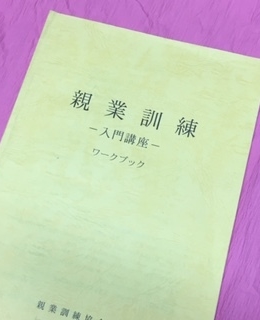 親業訓練
－入門講座－
ワークブック
親業訓練協